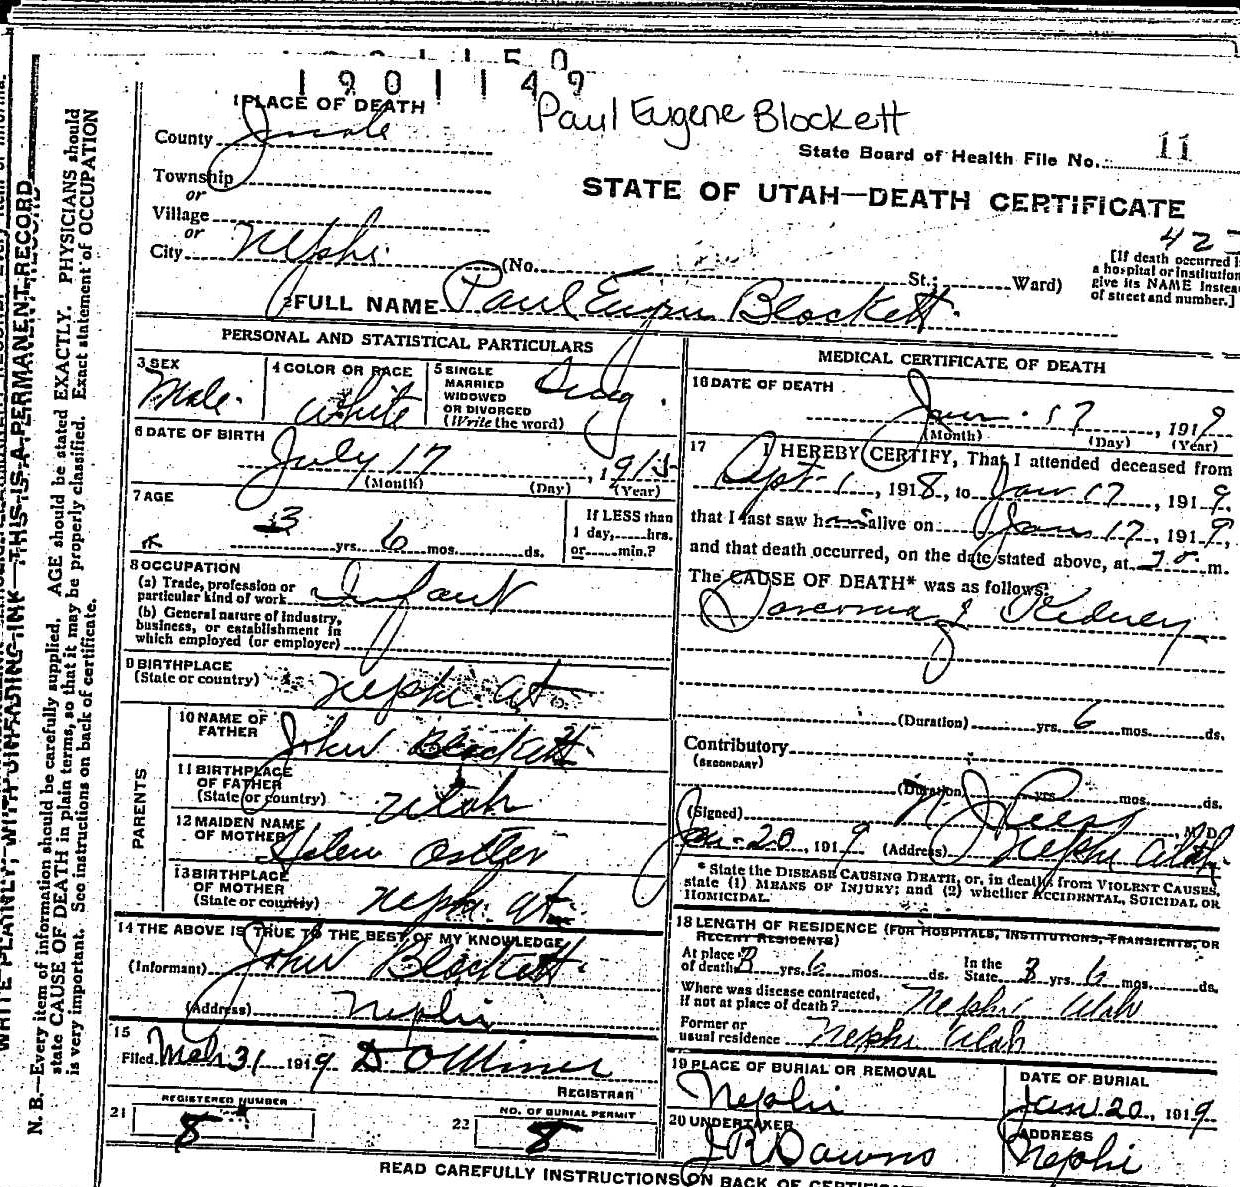 1901149
Paul Eugene Blockett
1 PLACE OF DEATH
County Juab
State Board of Health File No. 11
Township
or
STATE OF UTAH—DEATH CERTIFICATE
Village
or
City Nephi (No. St.; Ward)
[If death occurred in
a hospital or institution
give its NAME instead
of street and number.]
2 FULL NAME Paul Eugene Blockett.
PERSONAL AND STATISTICAL PARTICULARS
3 SEX
Male.
4 COLOR OR RACE
White
5 SINGLE
MARRIED
WIDOWED
OR DIVORCED
(Write the word)
Sing.
6 DATE OF BIRTH
July 17, 1915
(Month) (Day) (Year)
7 AGE
3 yrs. 6 mos. ds.
If LESS than
1 day, hrs.
or min.?
8 OCCUPATION
(a) Trade, profession or
particular kind of work Infant
(b) General nature of industry,
business, or establishment in
which employed (or employer)
9 BIRTHPLACE
(State or country) Nephi Ut.
PARENTS
10 NAME OF
FATHER John Blockett.
11 BIRTHPLACE
OF FATHER
(State or country) Utah
12 MAIDEN NAME
OF MOTHER Helen Ostler
13 BIRTHPLACE
OF MOTHER
(State or country) Nephi Ut.
14 THE ABOVE IS TRUE TO THE BEST OF MY KNOWLEDGE
(Informant) John Blockett.
(Address) Nephi
15
Filed Mch 31 1919 D O Miner
REGISTRAR
21 REGISTERED NUMBER
8
22 NO. OF BURIAL PERMIT
8
MEDICAL CERTIFICATE OF DEATH
16 DATE OF DEATH
Jan. 17, 1919
(Month) (Day) (Year)
17 I HEREBY CERTIFY, That I attended deceased from
Sept 1, 1918, to Jan 17, 1919,
that I last saw h alive on Jan 17, 1919,
and that death occurred, on the date stated above, at m.
The CAUSE OF DEATH* was as follows:
Sarcoma of Kidney
(Duration) yrs. 6 mos. ds.
Contributory
(SECONDARY)
(Duration) yrs. mos. ds.
(Signed) M. D.
Jan-20, 1919 (Address) Nephi Utah.
* State the DISEASE CAUSING DEATH, or, in deaths from VIOLENT CAUSES,
state (1) MEANS OF INJURY; and (2) whether ACCIDENTAL, SUICIDAL OR
HOMICIDAL.
18 LENGTH OF RESIDENCE (FOR HOSPITALS, INSTITUTIONS, TRANSIENTS, OR
RECENT RESIDENTS)
At place
of death 3 yrs. 6 mos. ds.
In the
State 3 yrs. 6 mos. ds.
Where was disease contracted,
if not at place of death? Nephi Utah
Former or
usual residence Nephi Utah
19 PLACE OF BURIAL OR REMOVAL
Nephi
DATE OF BURIAL
Jan 20, 1919
20 UNDERTAKER
J R Downs
ADDRESS
Nephi
READ CAREFULLY INSTRUCTIONS ON BACK OF
WRITE PLAINLY, WITH UNFADING INK—THIS IS A PERMANENT RECORD
N. B.—Every item of information should be carefully supplied. AGE should be stated EXACTLY. PHYSICIANS should
state CAUSE OF DEATH in plain terms, so that it may be properly classified. Exact statement of OCCUPATION
is very important. See instructions on back of certificate.